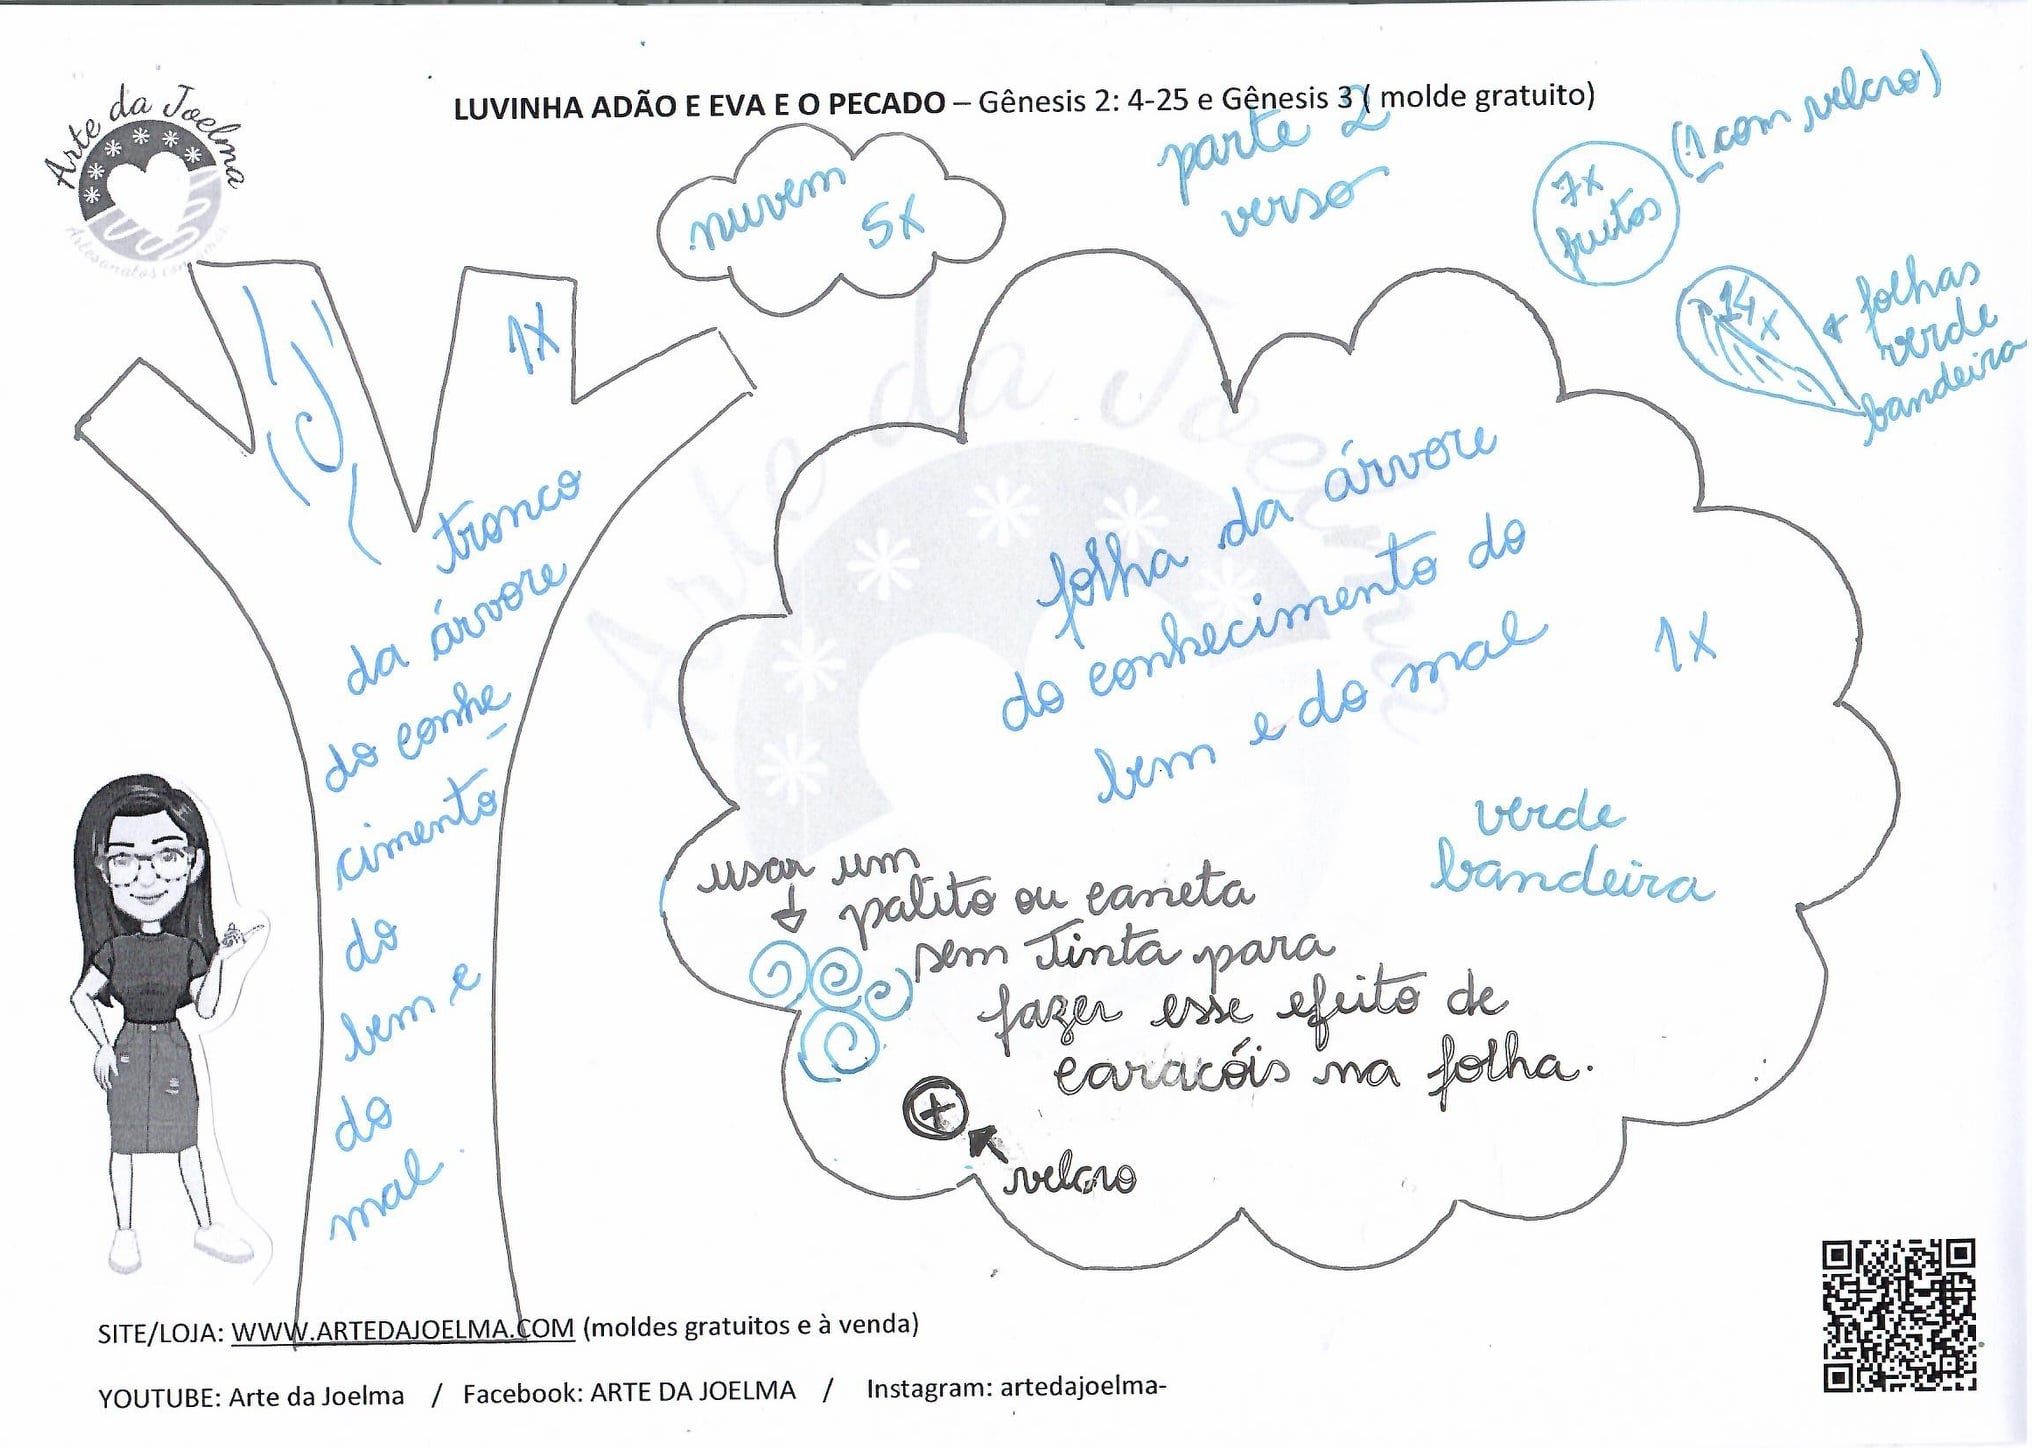 LUVINHA ADÃO E EVA E O PECADO – Gênesis 2: 4-25 e Gênesis 3 ( molde gratuito)
Arte da Joelma
parte 2
verso
nuvem
5X
7x
frutos
(1 com velcro)
14x
folhas
verde
bandeira
1X
tronco
da árvore
do conhe
cimento
do
bem e
do
mal.
Arte da Joelma
folha da árvore
do conhecimento do
bem e do mal
1X
verde
bandeira
usar um
palito ou caneta
sem Tinta para
fazer esse efeito de
caracóis na folha.
velcro
SITE/LOJA: WWW.ARTEDAJOELMA.COM (moldes gratuitos e à venda)
YOUTUBE: Arte da Joelma / Facebook: ARTE DA JOELMA / Instagram: artedajoelma-